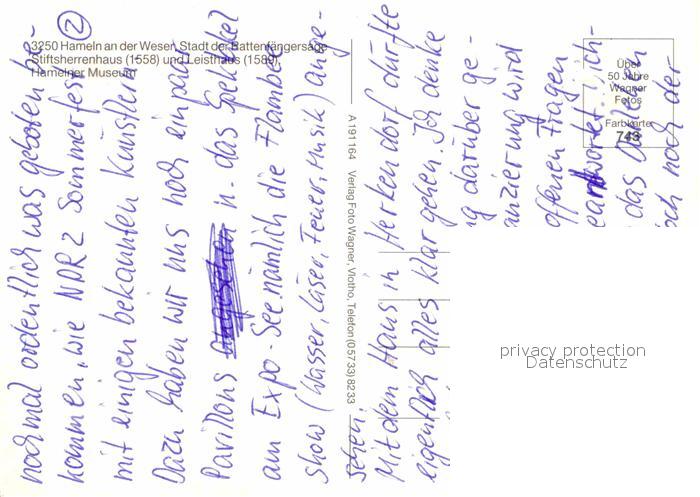 ②
3250 Hameln an der Weser, Stadt der Rattenfängersage
Stiftsherrenhaus (1558) und Leisthaus (1589)
Hamelner Museum
nochmal ordentlich was geboten be-
kommen, wie NDR 2 Sommerfest
mit einigen bekannten Künstlern
Dazu haben wir uns noch ein paar
Pavillons angesehen u. das Spektakel
am Expo-See nämlich die Flambée
show (Wasser, Laser, Feuer, Musik) ange-
sehen.
Mit dem Haus in Herkendorf dürfte
eigentlich alles klar gehen. Ich denke
g darüber ge-
anzierung wird
offenen Fragen
eantwortet. Ich
das
och noch der
A 191164 Verlag Foto Wagner, Vlotho, Telefon (05733) 8233
Über
50 Jahre
Wagner
Fotos
Farbkarte
743
privacy protection
Datenschutz